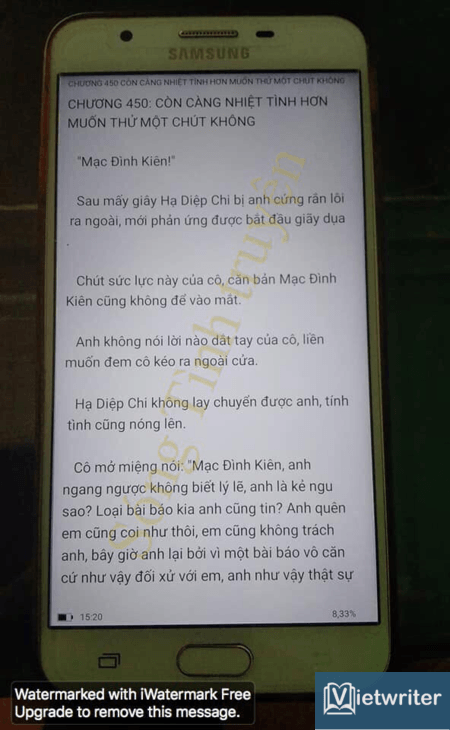 SAMSUNG
CHƯƠNG 450 CÒN CÀNG NHIỆT TÌNH HƠN MUỐN THỬ MỘT CHÚT KHÔNG
CHƯƠNG 450: CÒN CÀNG NHIỆT TÌNH HƠN
MUỐN THỬ MỘT CHÚT KHÔNG
"Mạc Đình Kiên!"
Sau mấy giây Hạ Diệp Chi bị anh cứng rắn lôi
ra ngoài, mới phản ứng được bắt đầu giãy dụa
.
Chút sức lực này của cô, căn bản Mạc Đình
Kiên cũng không để vào mắt.
Anh không nói lời nào dắt tay của cô, liền
muốn đem cô kéo ra ngoài cửa.
Hạ Diệp Chi không lay chuyển được anh, tính
tình cũng nóng lên.
Cô mở miệng nói: "Mạc Đình Kiên, anh
ngang ngược không biết lý lẽ, anh là kẻ ngu
sao? Loại bài báo kia anh cũng tin? Anh quên
em cũng coi như thôi, em cũng không trách
anh, bây giờ anh lại bởi vì một bài báo vô căn
cứ như vậy đối xử với em, anh như vậy thật sự
15:20
8,33%
Sóng Tình truyện
Watermarked with iWatermark Free
Upgrade to remove this message.
Vietwriter